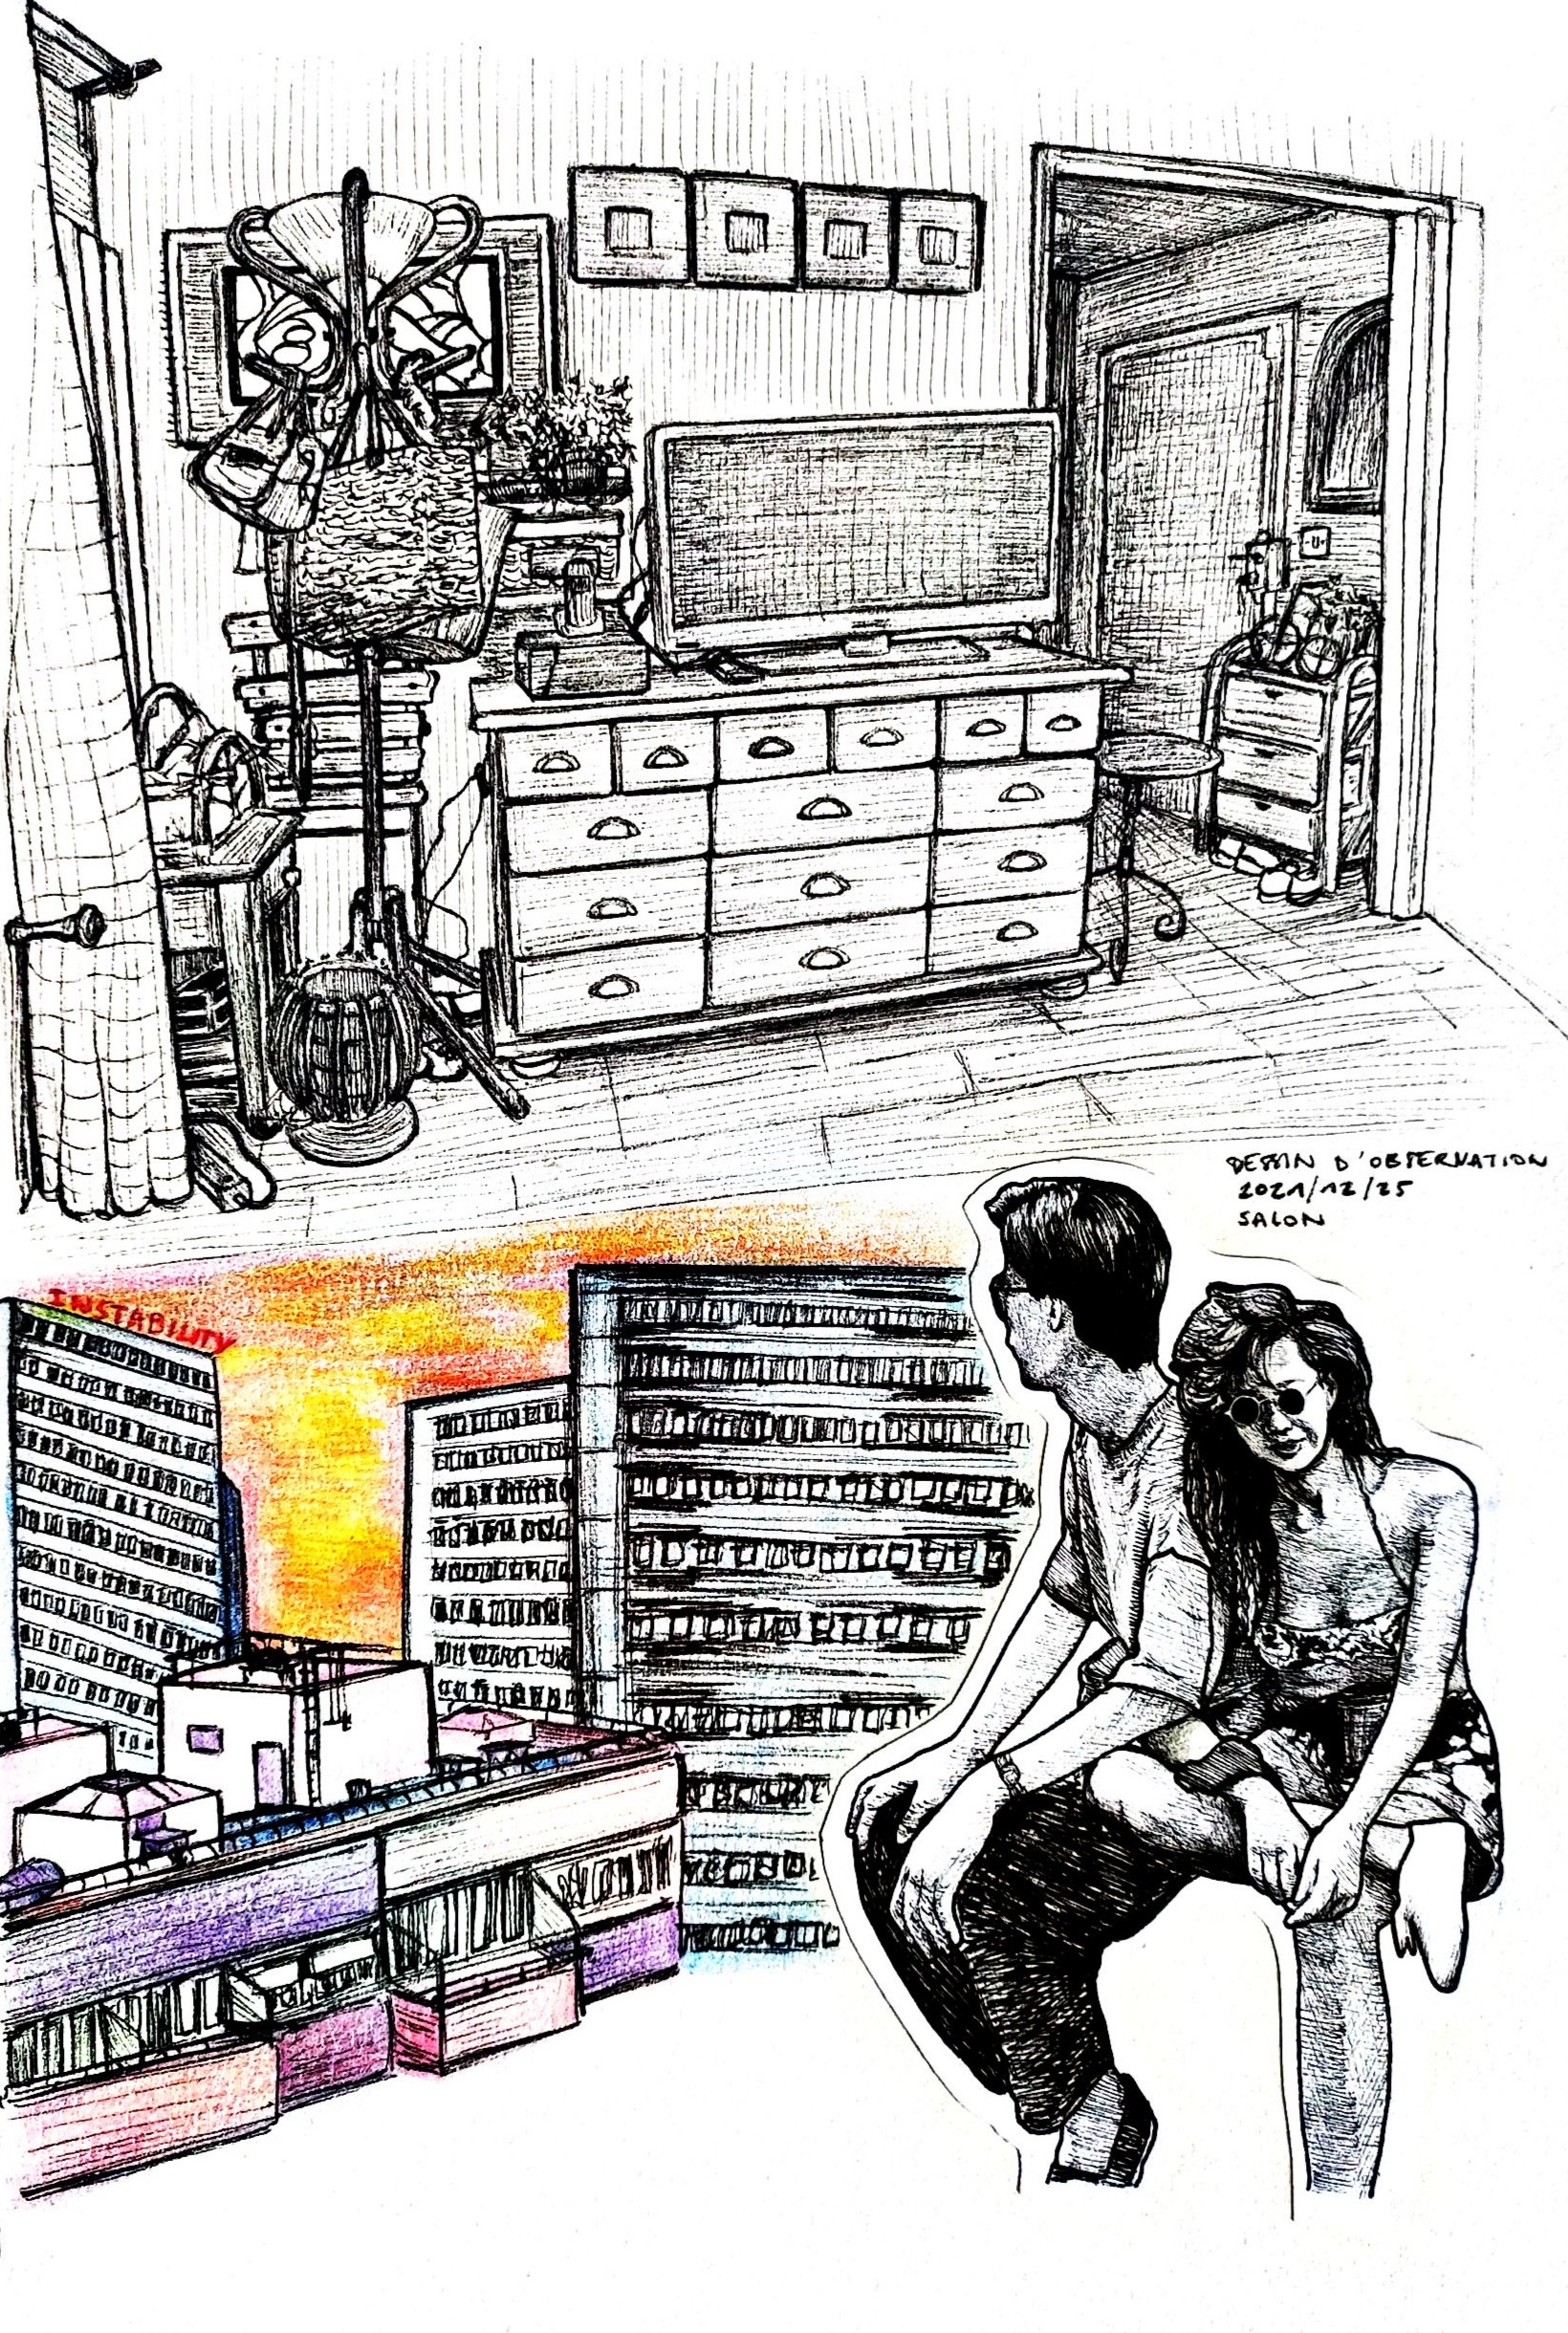 DESSIN D'OBSERVATION
2021/12/25
SALON
INSTABILITY